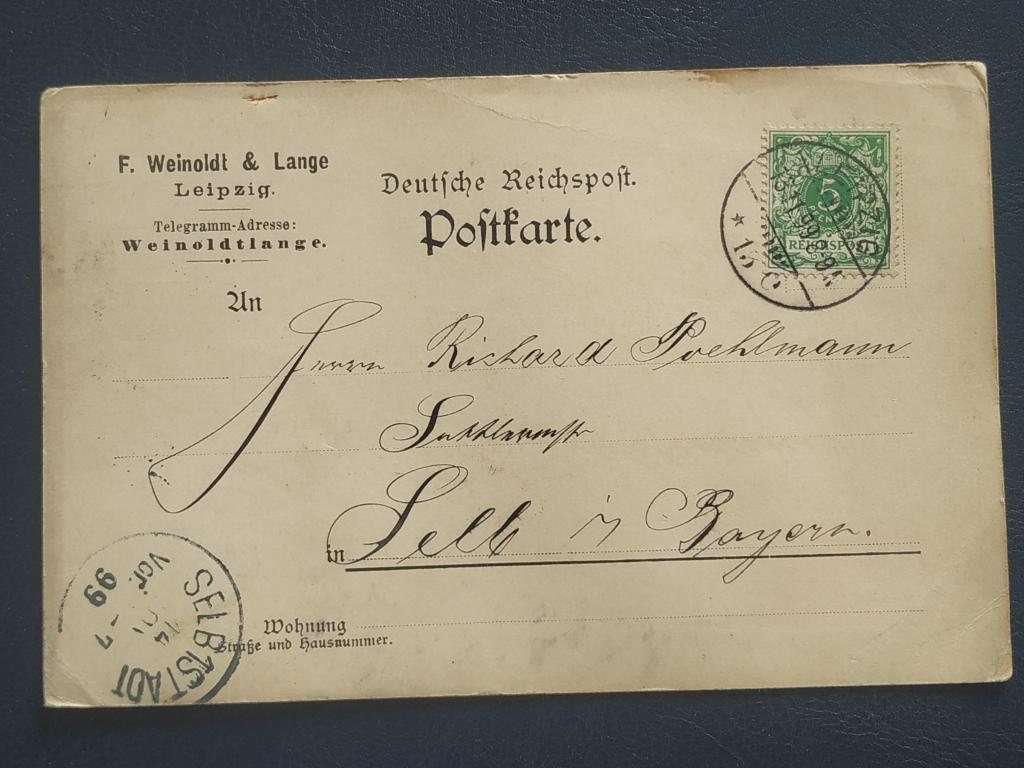 F. Weinoldt & Lange
Leipzig.
Telegramm-Adresse:
Weinoldtlange.
Deutsche Reichspost.
Postkarte.
5
REICHSPOST
LEIPZIG
* 13
An
Herrn Richard Poehlmann
Sattlermstr
in Selb i/ Bayern.
Wohnung
Straße und Hausnummer.
SELB STADT
Vor.
14
99